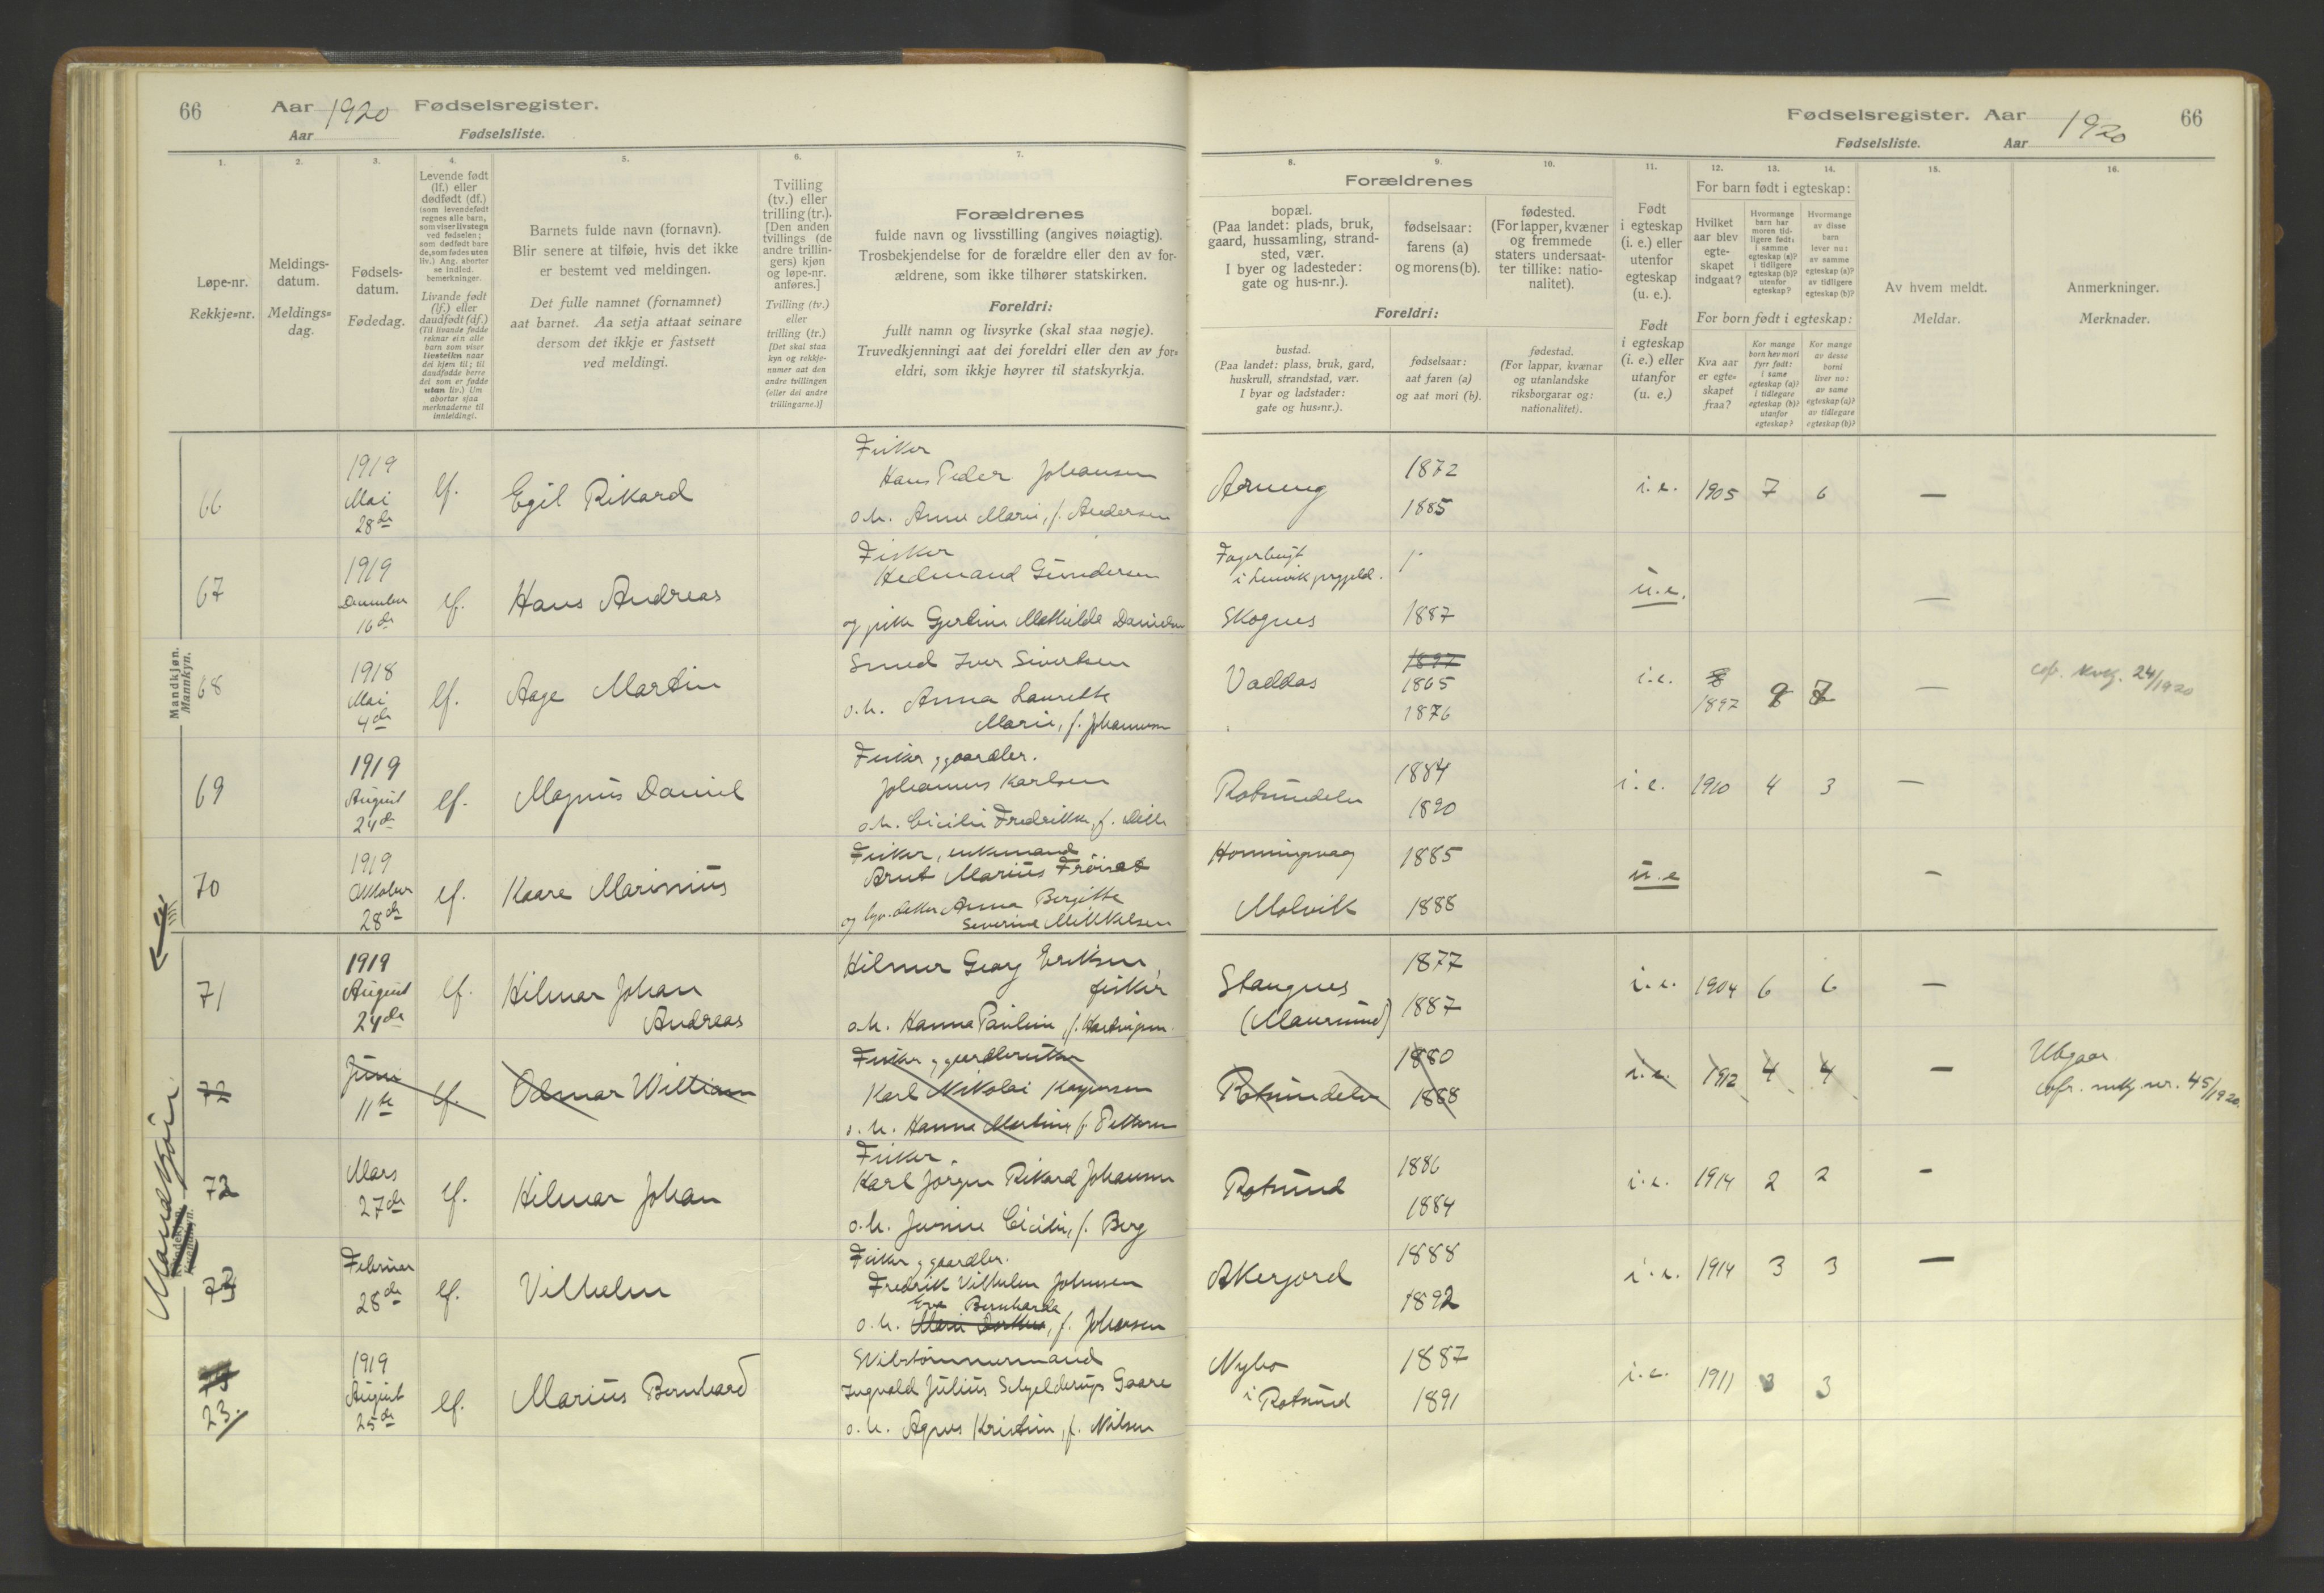 66 Aar 1920 Fødselsregister.
Aar Fødselsliste.
1. 2. 3. 4. 5. 6. 7.
Løpe-nr.
Rekkje-nr.
Meldings-
datum.
Meldings-
dag.
Fødsels-
datum.
Fødedag.
Levende født
(lf.) eller
dødfødt (df.)
(som levendefødt
regnes alle barn,
som viser livstegn
ved fødselen;
som dødfødt bare
de, som fødes uten
liv.) Ang. aborter
se indled.
bemerkninger.
Livande født
(lf.) eller
daudfødt (df.)
(Til livande fødde
reknar ein alle
barn som viser
livsteikn naar
dei kjem til; til
daudfødde berre
dei som er fødde
utan liv.) Um
abortar sjaa
merknaderne til
innleidingi.
Barnets fulde navn (fornavn).
Blir senere at tilføie, hvis det ikke
er bestemt ved meldingen.
Det fulle namnet (fornamnet)
aat barnet. Aa setja attaat seinare
dersom det ikkje er fastsett
ved meldingi.
Tvilling
(tv.) eller
trilling (tr.).
[Den anden
tvillings (de
andre trillin-
gers) kjøn
og løpe-nr.
anføres.]
Tvilling (tv.)
eller
trilling (tr.)
[Det skal staa
kyn og rekkje-
numer aat den
andre tvillingen
(eller dei andre
trillingarne.)]
Forældrenes
fulde navn og livsstilling (angives nøiagtig).
Trosbekjendelse for de forældre eller den av for-
ældrene, som ikke tilhører statskirken.
Foreldri:
fullt namn og livsyrke (skal staa nøgje).
Truvedkjenningi aat dei foreldri eller den av for-
eldri, som ikkje høyrer til statskyrkja.
Fødselsregister. Aar 1920 66
Fødselsliste. Aar
8. 9. 10. 11. 12. 13. 14. 15. 16.
Forældrenes
bopæl.
(Paa landet: plads, bruk,
gaard, hussamling, strand-
sted, vær.
I byer og ladesteder:
gate og hus-nr.).
fødselsaar:
farens (a)
og morens (b).
fødested.
(For lapper, kvæner
og fremmede
staters undersaat-
ter tillike: natio-
nalitet).
Foreldri:
bustad.
(Paa landet: plass, bruk, gard,
huskrull, strandstad, vær.
I byar og ladstader:
gate og hus-nr.).
fødselsaar:
aat faren (a)
og aat mori (b).
fødestad.
(For lappar, kvænar
og utanlandske
riksborgarar og:
nationalitet).
Født
i egteskap
(i. e.) eller
utenfor
egteskap
(u. e.).
Født
i egteskap
(i. e.) eller
utanfor
(u. e.)
For barn født i egteskap:
Hvilket
aar blev
egte-
skapet
indgaat?
Hvormange
barn har
moren tid-
ligere født:
i samme
egteskap (a)?
i tidligere
egteskap (b)?
utenfor
egteskap?
Hvormange
av disse
barn
lever nu:
av samme
egteskap (a)?
av tidligere
egteskap (b)?
For born født i egteskap:
Kva aar
er egte-
skapet
fraa?
Kor mange
born hev mori
fyrr født:
i same
egteskap (a)?
i tidlegare
egteskap (b)?
utanfor
egteskap?
Kor mange
av desse
borni
liver no:
av same
egteskap (a)?
av tidlegare
egteskap (b)?
Av hvem meldt.
Meldar.
Anmerkninger.
Merknader.
Mandkjøn.
Mannkyn.
66 1919 Mai 28de lf. Egil Rikard
Fisker
Hans Peder Johansen
o.h. Anna Marie, f. Andersen
1872
1885
i.e. 1905 7 6 —
67 1919 December 16de lf. Hans Andreas
Fisker
Hedmand Gundersen
og pike Gjertine Mathilde Danielsen
Skognes 1887
u.e. —
68 1918 Mai 4de lf. Aage Martin
Smed Iver Sivertsen
o.h. Anna Laurette
Marie, f. Johannesen
Vaddas
1897
1865
1876
i.e. 8 1897 8 7 —
cfr. 24/1920
69 1919 August 24de lf. Magnus Daniel
Fisker, gaardbr.
Johannes Karlsen
o.h. Cicilie Fredrikke, f.
Rotsundelv
1884
1890
i.e. 1910 4 3 —
70 1919 Oktober 28de lf. Kaare Marinius
Fisker, enkemand
Arnt Marius
og Anna Bergitte
Severine Mikkelsen
Honningsvaag 1885
Molvik 1888
u.e —
71 1919 August 24de lf. Hilmar Johan
Andreas
Hilmer Georg Eriksen
fisker
o.h. Hanna Pauline, f.
Stangnes
(Maursund)
1877
1887
i.e. 1904 6 6 —
Mandkjøn
72 Juni 11te lf. Odmar William
Fisker, gaardbruker
Karl Nikolai
o.h. Hanna Martine f. Pettersen
Rotsundelv
1880
1888
i.e. 1912 4 4 —
Utgaar
cfr. nr. 45/1920.
72 Mars 27de lf. Hilmar Johan
Fisker
Karl Jörgen Rikard Johansen
o.h. Cicilie, f. Berg
Rotsund
1886
1884
i.e. 1914 2 2 -
73 Februar 28de lf. Vilhelm
Fisker, gaardbr.
Fredrik Vilhelm Johnsen
Eva Bernharda
o.h. f. Johansen
Akerjord
1888
1892
i.e. 1914 3 3 —
23. 1919 August 25de lf. Marius Bernhard
Skibstømmermand
Ingvald Julius Schjelderup Gaare
o.h. Agnes Kristine, f. Nilsen
Nybo
i Rotsund
1887
1891
i.e. 1911 3 3